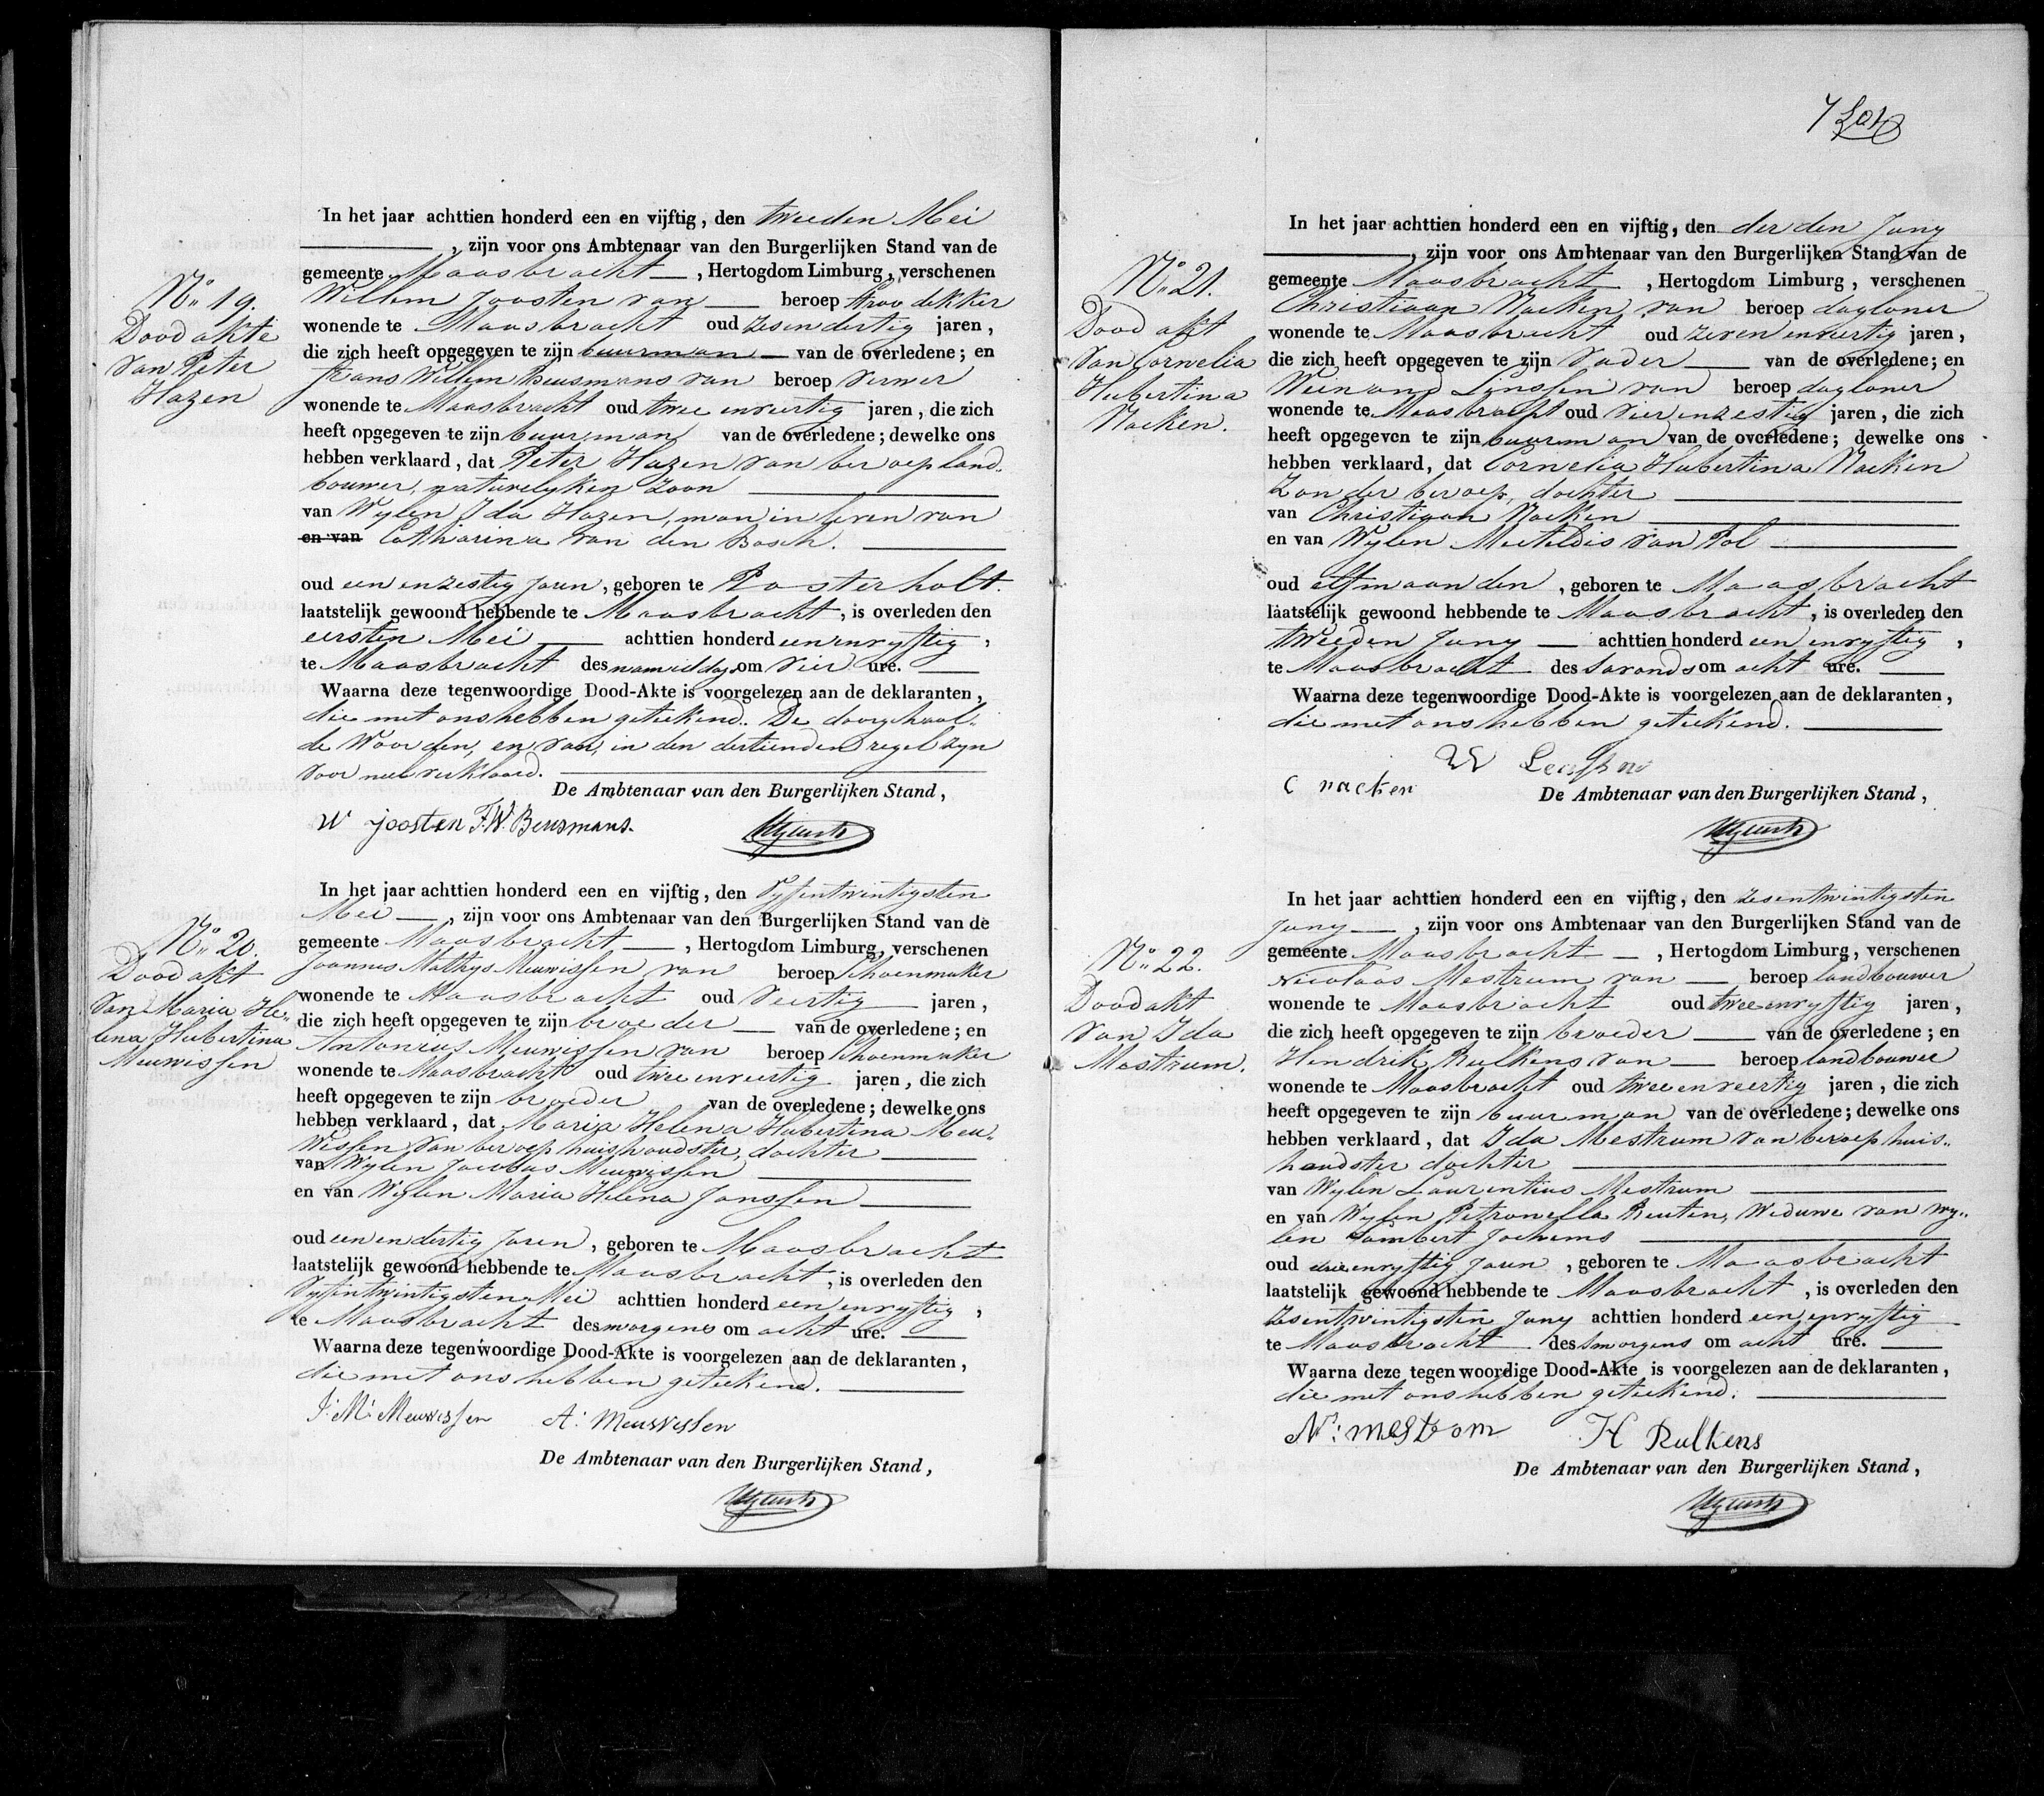 In het jaar achttien honderd een en vijftig, den tweeden Mei
, zijn voor ons Ambtenaar van den Burgerlijken Stand van de
gemeente Maasbracht, Hertogdom Limburg, verschenen
Willem Joosten van beroep stroodekker
wonende te Maasbracht oud zesendertig jaren,
die zich heeft opgegeven te zijn buurman van de overledene; en
Frans Willem Beusmans van beroep verwer
wonende te Maasbracht oud twee enveertig jaren, die zich
heeft opgegeven te zijn buurman van de overledene; dewelke ons
hebben verklaard, dat Peter Hazen van beroep land-
bouwer, natuurelyken zoon
van Wylen Ida Hazen, man in leven van
en van Catharina van den Bosch.
oud een enzestig jaren, geboren te Posterholt.
laatstelijk gewoond hebbende te Maasbracht, is overleden den
eersten Mei achttien honderd een envyftig,
te Maasbracht des namiddag om vier ure.
Waarna deze tegenwoordige Dood-Akte is voorgelezen aan de deklaranten,
die met ons hebben geteekend. De doorgehaal-
de woorden, en van, in den dertienden regel zyn
voor niet verklaard.
De Ambtenaar van den Burgerlijken Stand,
W joosten F.W. Beusmans.
No 19.
Dood akte
van Peter
Hazen
In het jaar achttien honderd een en vijftig, den Vyfentwintigsten
Mei, zijn voor ons Ambtenaar van den Burgerlijken Stand van de
gemeente Maasbracht, Hertogdom Limburg, verschenen
Joannes Mathys Meuwissen van beroep schoenmaker
wonende te Maasbracht oud veertig jaren,
die zich heeft opgegeven te zijn broeder van de overledene; en
Antonius Meuwissen van beroep schoenmaker
wonende te Maasbracht oud twee enveertig jaren, die zich
heeft opgegeven te zijn broeder van de overledene; dewelke ons
hebben verklaard, dat Maria Helena Hubertina Meu-
wissen van beroep huishoudster, dochter
van Wylen Jacobus Meuwissen
en van Wylen Maria Helena Janssen
oud een en dertig jaren, geboren te Maasbracht
laatstelijk gewoond hebbende te Maasbracht, is overleden den
Vyfentwintigsten Mei achttien honderd een envyftig,
te Maasbracht des morgens om acht ure.
Waarna deze tegenwoordige Dood-Akte is voorgelezen aan de deklaranten,
die met ons hebben geteekend.
J: M: Meuwissen A: Meuwissen
De Ambtenaar van den Burgerlijken Stand,
No 20.
Dood akt
van Maria He-
lena Hubertina
Meuwissen
7
In het jaar achttien honderd een en vijftig, den derden Juny
, zijn voor ons Ambtenaar van den Burgerlijken Stand van de
gemeente Maasbracht, Hertogdom Limburg, verschenen
Christiaan Nacken van beroep dagloner
wonende te Maasbracht oud zeven enveertig jaren,
die zich heeft opgegeven te zijn vader van de overledene; en
Weinand Linssen van beroep dagloner
wonende te Maasbracht oud vier enzestig jaren, die zich
heeft opgegeven te zijn buurman van de overledene; dewelke ons
hebben verklaard, dat Cornelia Hubertina Nacken
zonder beroep, dochter
van Christiaan Nacken
en van Wylen Mechtildis van Pol
oud elf maanden, geboren te Maasbracht
laatstelijk gewoond hebbende te Maasbracht, is overleden den
tweeden Juny achttien honderd een envyftig,
te Maasbracht des savonds om acht ure.
Waarna deze tegenwoordige Dood-Akte is voorgelezen aan de deklaranten,
die met ons hebben geteekend.
W
C nacken
De Ambtenaar van den Burgerlijken Stand,
No 21.
Dood akt
van Cornelia
Hubertina
Nacken.
In het jaar achttien honderd een en vijftig, den zesentwintigsten
Juny, zijn voor ons Ambtenaar van den Burgerlijken Stand van de
gemeente Maasbracht, Hertogdom Limburg, verschenen
Nicolaas Mestrum van beroep landbouwer
wonende te Maasbracht oud twee envyftig jaren,
die zich heeft opgegeven te zijn broeder van de overledene; en
Hendrik Rulkens van beroep landbouwer
wonende te Maasbracht oud twee enveertig jaren, die zich
heeft opgegeven te zijn buurman van de overledene; dewelke ons
hebben verklaard, dat Ida Mestrum van beroep huis-
houdster dochter
van Wylen Laurentius Mestrum
en van Wylen Petronella Reuten, Weduwe van wy-
len Lambert Jochems
oud drie envyftig jaren, geboren te Maasbracht
laatstelijk gewoond hebbende te Maasbracht, is overleden den
zesentwintigsten Juny achttien honderd een envyftig
te Maasbracht des smorgens om acht ure.
Waarna deze tegenwoordige Dood-Akte is voorgelezen aan de deklaranten,
die met ons hebben geteekend.
N: mestrom H Rulkens
De Ambtenaar van den Burgerlijken Stand,
No 22.
Dood akt
van Ida
Mestrum.